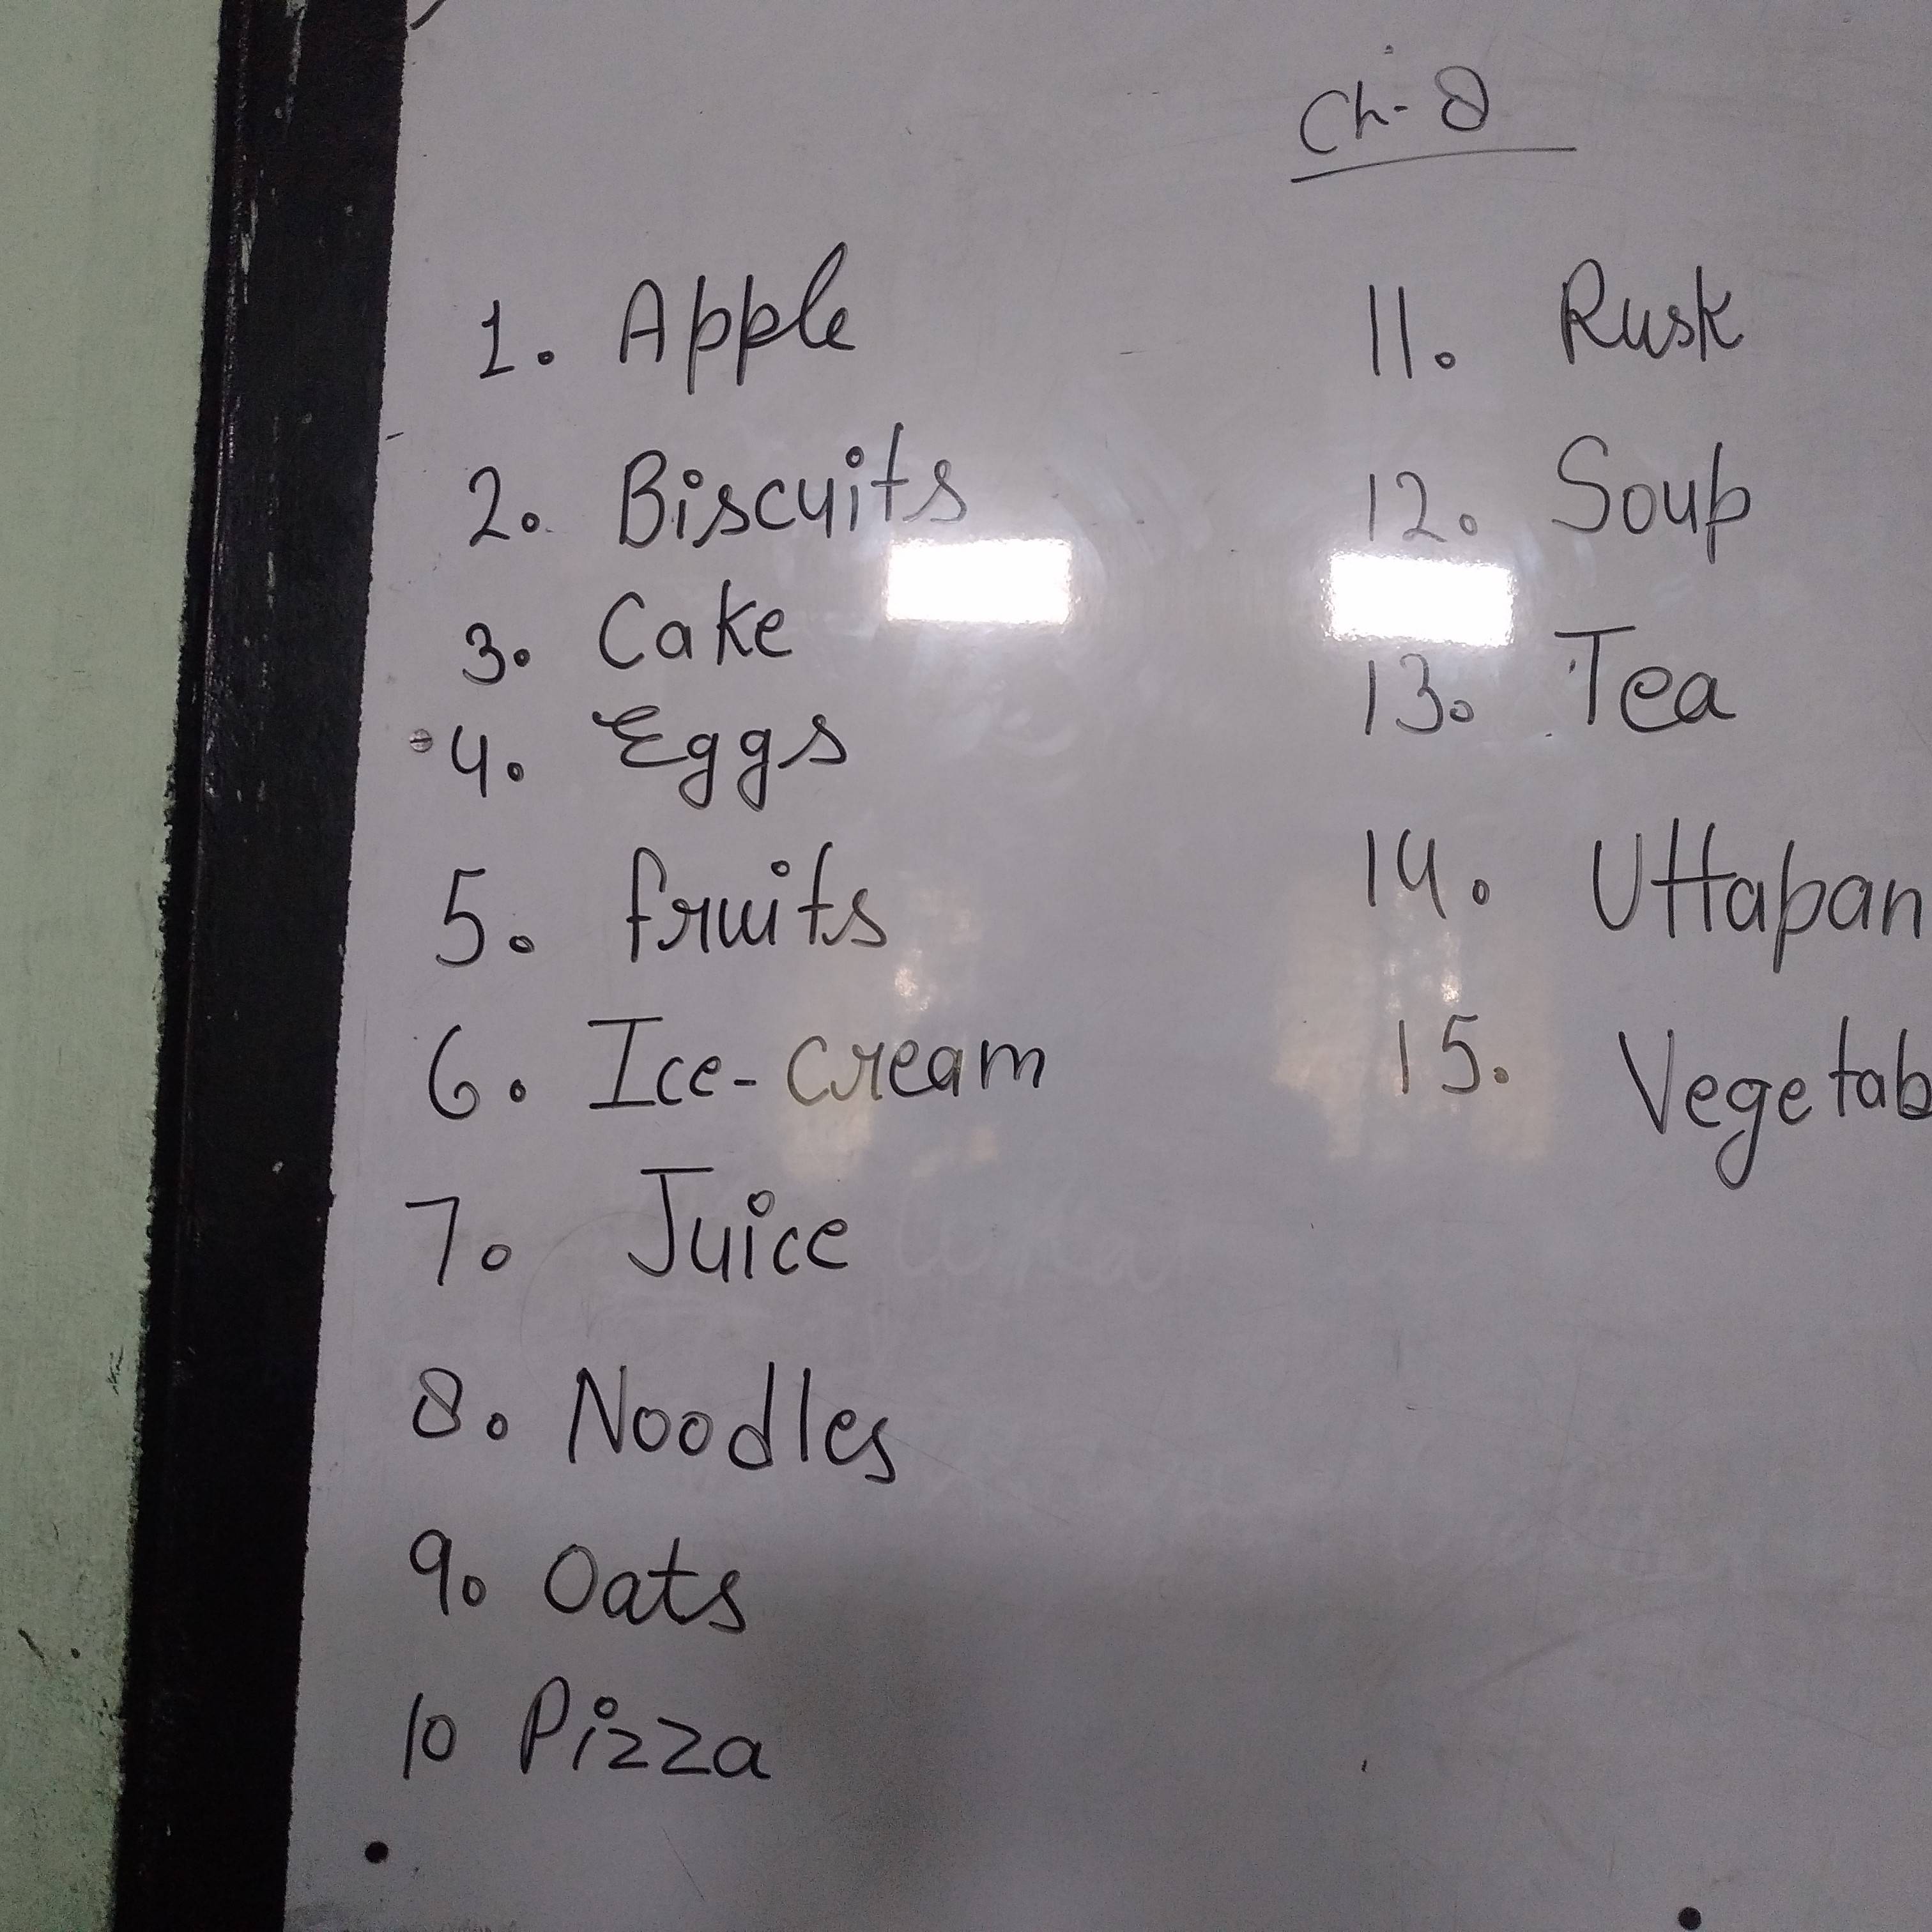 Ch-8
1. Apple
2. Biscuits
3. Cake
4. Eggs
5. fruits
6. Ice-cream
7. Juice
8. Noodles
9. Oats
10 Pizza
11. Rusk
12. Soup
13. Tea
14. Uttapan
15. Vegetab